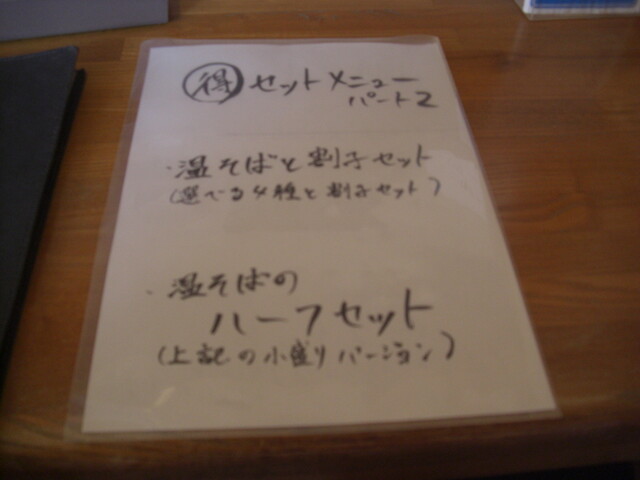 得 セットメニュー
パート2
・温そばと割子セット
(選べる4種と割子セット)
・温そばの
ハーフセット
(上記の小盛りバージョン)